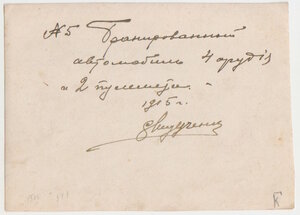 №5 Бронированный
автомобиль 4 орудія
и 2 пулемета.
1915 г.